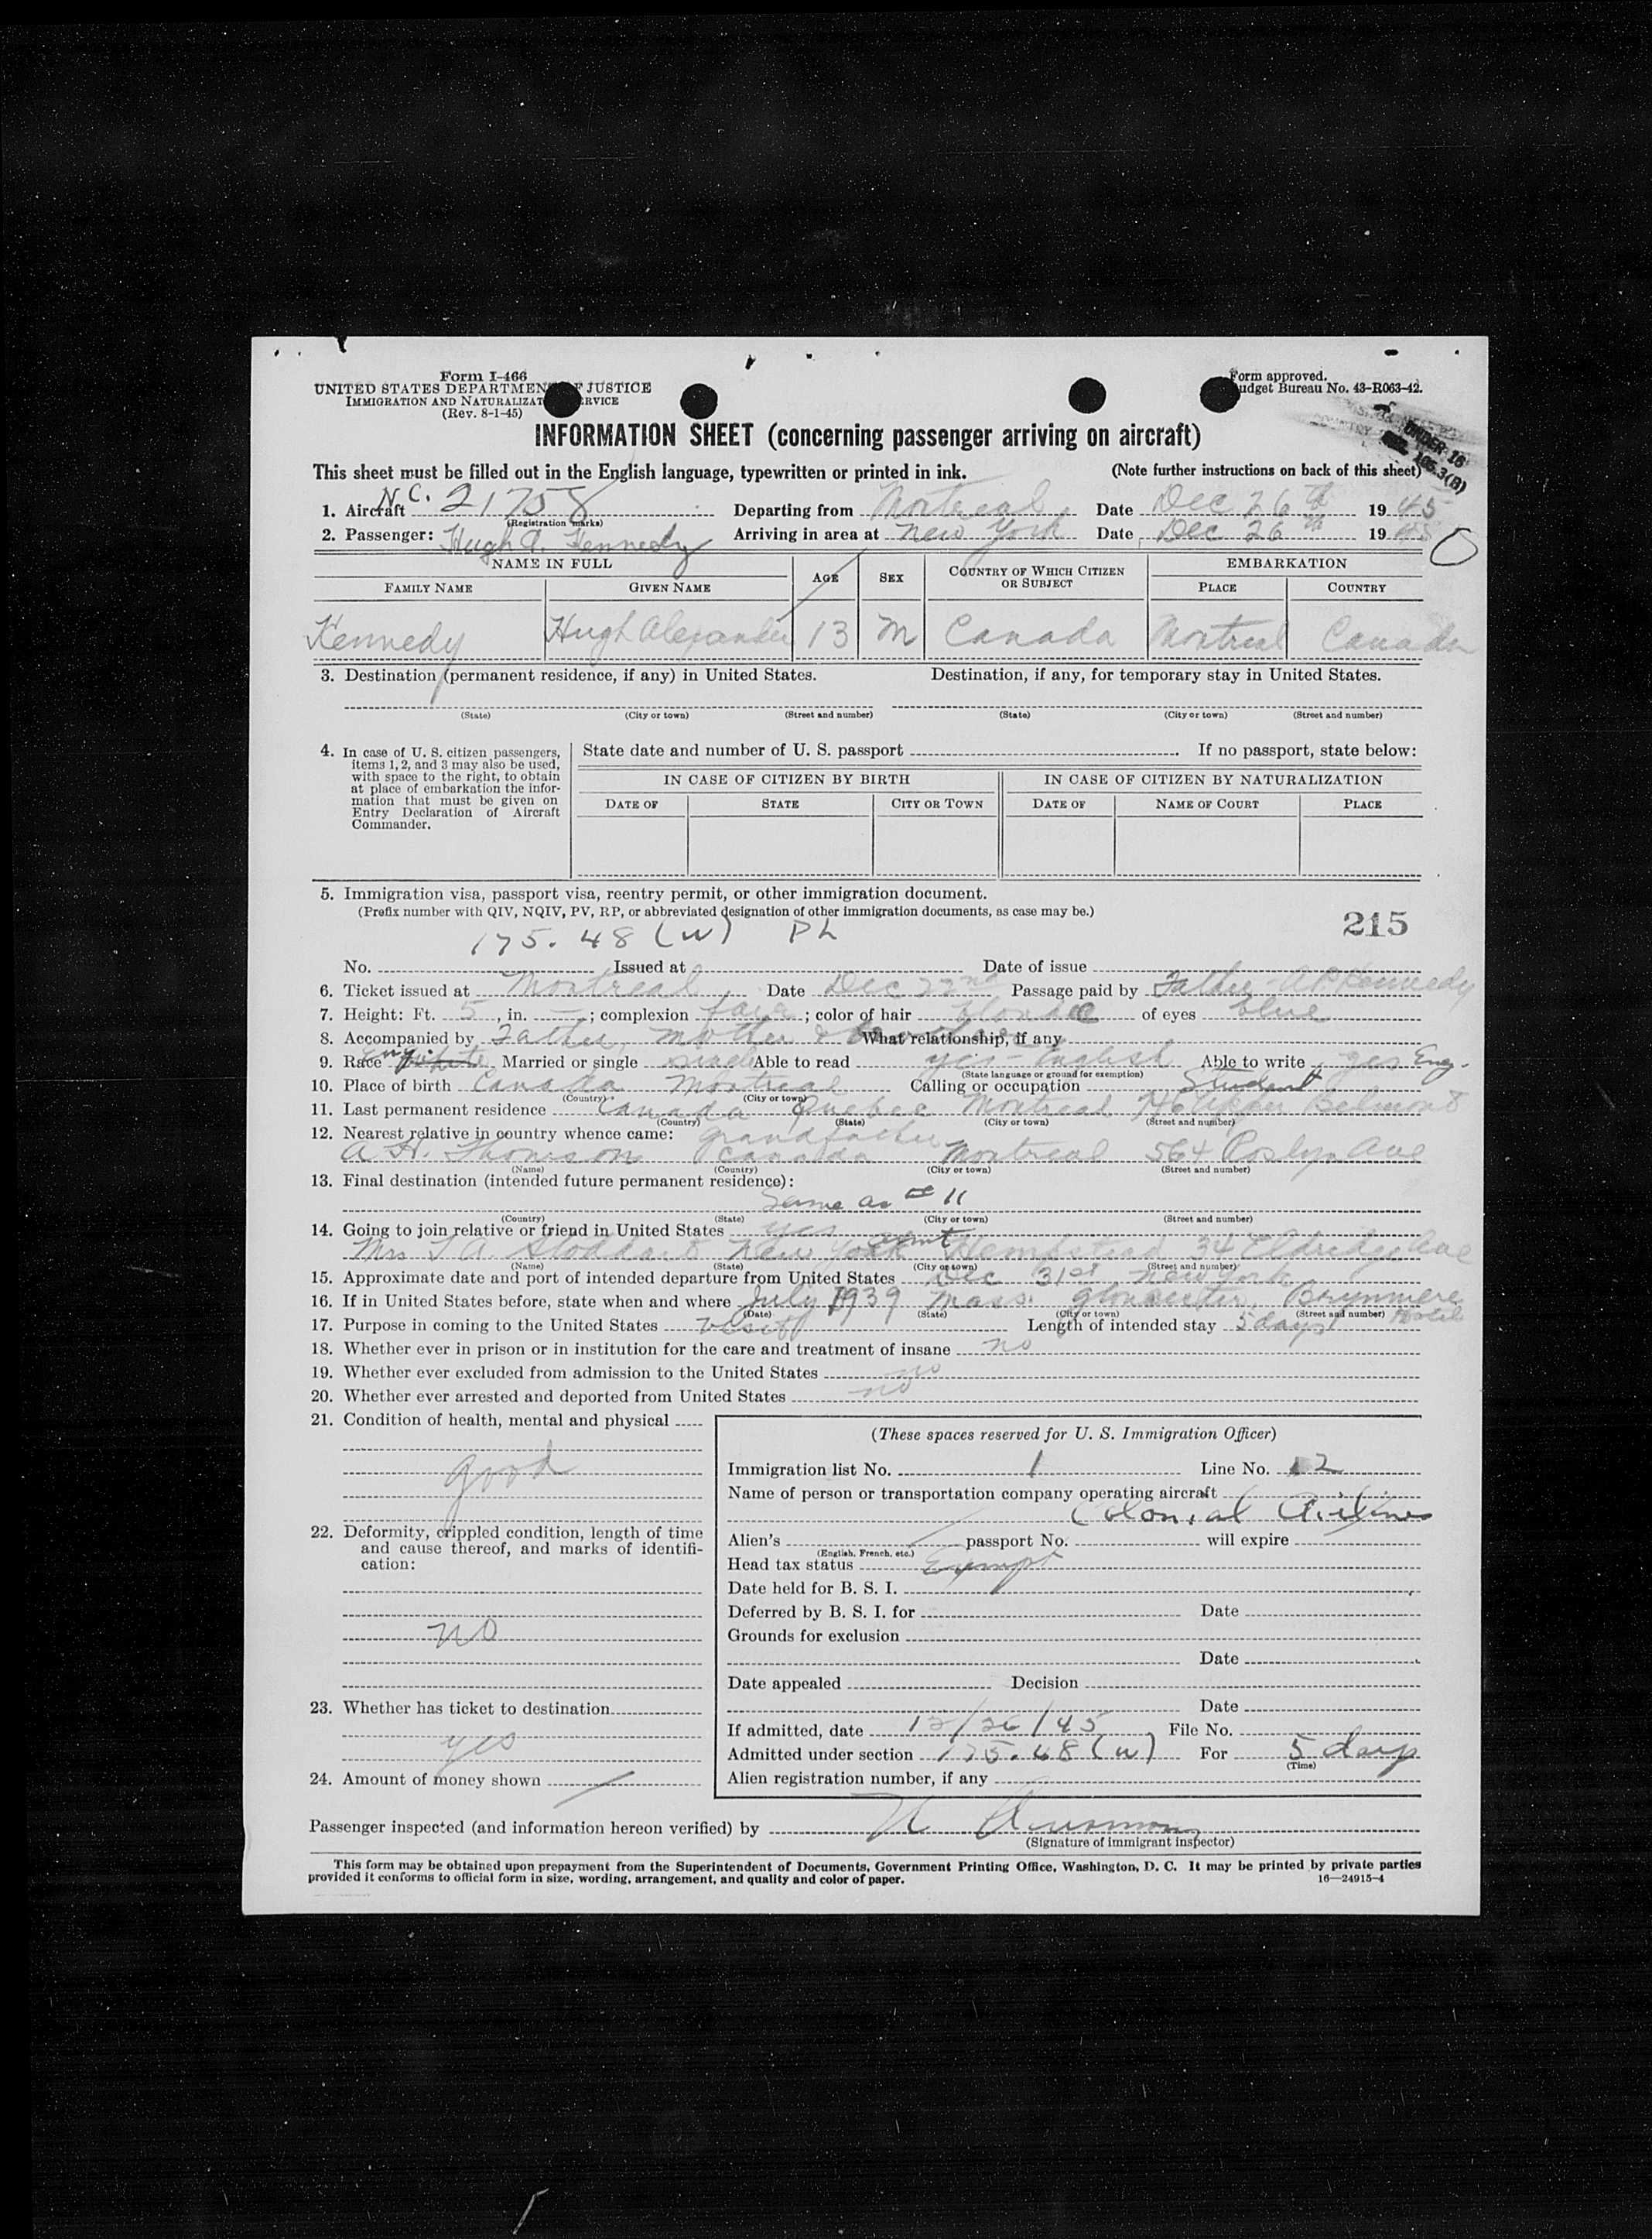 Form I-466
UNITED STATES DEPARTMENT OF JUSTICE
IMMIGRATION AND NATURALIZATION SERVICE
(Rev. 8-1-45)
Form approved.
Budget Bureau No. 43-R063-42.
UNDER 16
INFORMATION SHEET (concerning passenger arriving on aircraft)
This sheet must be filled out in the English language, typewritten or printed in ink. (Note further instructions on back of this sheet)
1. Aircraft N.C. 21758 Departing from Montreal Date Dec 26th 1945
(Registration marks)
2. Passenger: Hugh A. Kennedy Arriving in area at New York Date Dec 26th 1945
NAME IN FULL AGE SEX COUNTRY OF WHICH CITIZEN OR SUBJECT EMBARKATION
FAMILY NAME GIVEN NAME PLACE COUNTRY
Kennedy Hugh Alexander 13 M Canada Montreal Canada
3. Destination (permanent residence, if any) in United States. Destination, if any, for temporary stay in United States.
(State) (City or town) (Street and number) (State) (City or town) (Street and number)
4. In case of U. S. citizen passengers, items 1, 2, and 3 may also be used, with space to the right, to obtain at place of embarkation the information that must be given on Entry Declaration of Aircraft Commander.
State date and number of U. S. passport If no passport, state below:
IN CASE OF CITIZEN BY BIRTH IN CASE OF CITIZEN BY NATURALIZATION
DATE OF STATE CITY OR TOWN DATE OF NAME OF COURT PLACE
5. Immigration visa, passport visa, reentry permit, or other immigration document.
(Prefix number with QIV, NQIV, PV, RP, or abbreviated designation of other immigration documents, as case may be.)
215
175.48 (W) PL
No. Issued at Date of issue
6. Ticket issued at Montreal Date Dec 22nd Passage paid by Father - A.P. Kennedy
7. Height: Ft. 5, in. —; complexion fair; color of hair blonde of eyes blue
8. Accompanied by Father, mother & brother What relationship, if any
9. Race white Eng. Married or single single Able to read yes - English Able to write yes Eng.
(State language or ground for exemption)
10. Place of birth Canada Montreal Calling or occupation Student
(Country) (City or town)
11. Last permanent residence Canada Quebec Montreal 746 Upper Belmont
(Country) (State) (City or town) (Street and number)
12. Nearest relative in country whence came: grandfather
A. H. Thomson Canada Montreal 564 Roslyn Ave
(Name) (Country) (City or town) (Street and number)
13. Final destination (intended future permanent residence):
Same as # 11
(Country) (State) (City or town) (Street and number)
14. Going to join relative or friend in United States yes aunt
Mrs T. A. Stoddard New York Hempstead 34 Eldridge Ave
(Name) (State) (City or town) (Street and number)
15. Approximate date and port of intended departure from United States Dec 31st New York
16. If in United States before, state when and where July 1939 Mass. Gloucester Brynmere Hotel
(Date) (State) (City or town) (Street and number)
17. Purpose in coming to the United States visit Length of intended stay 5 days
18. Whether ever in prison or in institution for the care and treatment of insane no
19. Whether ever excluded from admission to the United States no
20. Whether ever arrested and deported from United States no
21. Condition of health, mental and physical
good
22. Deformity, crippled condition, length of time and cause thereof, and marks of identification:
no
23. Whether has ticket to destination
yes
24. Amount of money shown
(These spaces reserved for U. S. Immigration Officer)
Immigration list No. 1 Line No. 12
Name of person or transportation company operating aircraft
Colonial Airlines
Alien's passport No. will expire
(English, French, etc.)
Head tax status Exempt
Date held for B. S. I.
Deferred by B. S. I. for Date
Grounds for exclusion
Date
Date appealed Decision
Date
If admitted, date 12/26/45 File No.
Admitted under section 175.48 (W) For 5 days
(Time)
Alien registration number, if any
Passenger inspected (and information hereon verified) by
(Signature of immigrant inspector)
This form may be obtained upon prepayment from the Superintendent of Documents, Government Printing Office, Washington, D. C. It may be printed by private parties
provided it conforms to official form in size, wording, arrangement, and quality and color of paper.
16—24915-4